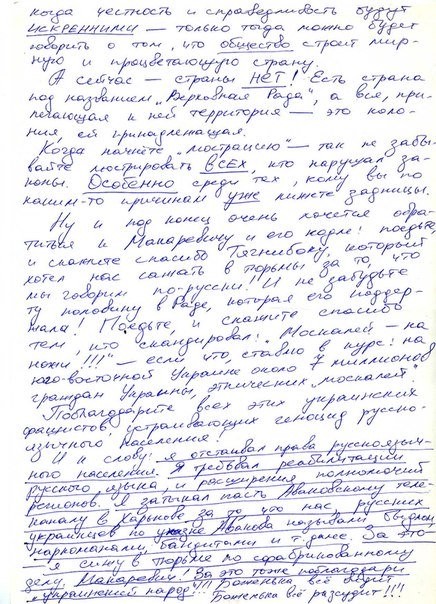 когда честность и справедливость будут
ИСКРЕННИМИ — только тогда можно будет
говорить о том, что общество строит мир-
ную и процветающую страну.
А сейчас — страны НЕТ! Есть страна
под названием „Верховная Рада", а вся, при-
легающая к ней территория — это коло-
ния, ей принадлежащая.
Когда начнёте „люстрацию" — так не забы-
вайте люстрировать ВСЕХ, кто нарушал за-
коны. Особенно среди тех, кому вы по
каким-то причинам уже лижете задницы.
Ну и под конец очень хочется обра-
титься к Макаревичу и его кодле: поедьте,
и скажете спасибо Тягнибоку, который
хотел нас сажать в тюрьмы за то, что
мы говорим по-русски! И не забудьте
ту половину в Раде, которая его поддер-
жала! Поедьте, и скажите спасибо
тем, кто скандировал: „Москалей — на
ножи!!!" — если что, ставлю в курс: на
юго-восточной Украине около 7 миллионов
граждан Украины, этнических „москалей".
Поблагодарите всех этих украинских
фашистов, устраивающих геноцид русско-
язычного населения!
И к слову: я отстаивал права русскоязыч-
ного населения. Я требовал реабилитации
русского языка, и расширения полномочий
регионов. Я затыкал пасть Аваковскому теле-
каналу в Харькове за то, что нас русских
украинцев по указке Авакова называли быдлом
наркоманами, бандитами и т.далее. За это
— я сижу в тюрьме по сфабрикованному
делу. Макаревич! За это тоже поблагодари
„украинский народ"!!! Боженька всё видит
Боженька всё рассудит!!!